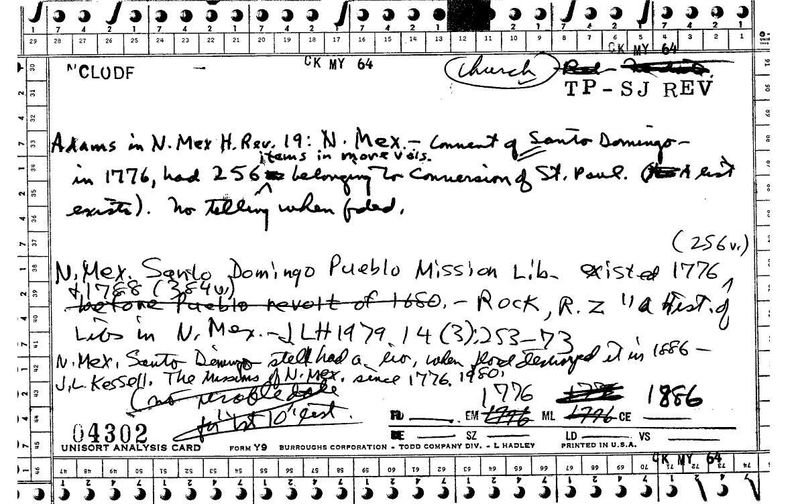 CK MY 64
CK MY 64
NCLUDF
Church
TP-SJ REV
Adams in N. Mex H. Rev. 19: N. Mex. - Convent of Santo Domingo -
items in more vols.
in 1776, had 256 belonging to Conversion of St. Paul. (A list
exists). No telling when fded.
(256 v.)
N. Mex. Santo Domingo Pueblo Mission Lib. existed 1776
+ 1788 (384 v.)
before Pueblo revolt of 1680. - Rock, R. Z "A Hist. of
Libs in N. Mex. - JLH 1979, 14 (3): 253-73
N. Mex. Santo Domingo still had a lib, when flood destroyed it in 1886 -
J.L. Kessell. The Missions of N. Mex. since 1776, 1980.
(no
for 1st 10 est.
1776 1886
EM 1776 ML 1776 CE
SZ LD VS
04302
UNISORT ANALYSIS CARD FORM Y9 BURROUGHS CORPORATION - TODD COMPANY DIV. - L HADLEY PRINTED IN U.S.A.
CK MY 64